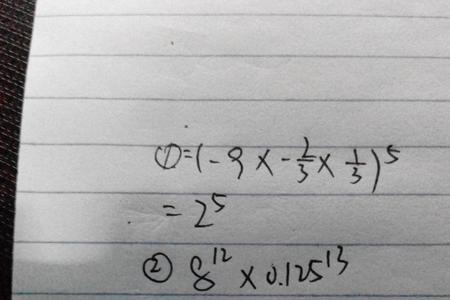 ①=(-9×-2/3×1/3)^5
=2^5
② 8^12×0.125^13